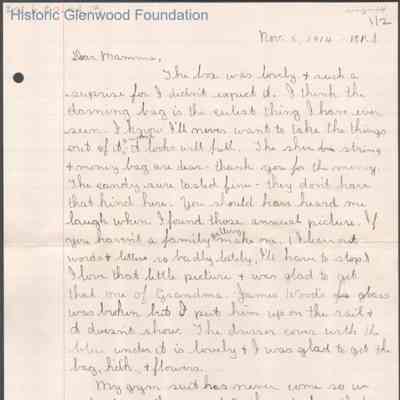 Historic Glenwood Foundation
1/2
Nov. 5, 1914
Dear Mamma,
The box was lovely & such a
surprise for I didn't expect it. I think the
darning bag is the cutest thing I have ever
seen. I know I'll never want to take the things
out of it, it looks will full. The shoe string
& money bag are dear - thank you for the money.
The candy sure tasted fine - they don't have
that kind here. You should have heard me
laugh when I found those annual picture. If
you haven't a family calling make one. (I leave out
words & letters so badly lately, I'll have to stop)
I love that little picture & was glad to get
that one of Grandma. James Woods glass
was broken but I put him up on the rail &
it doesn't show. The dresser cover with the
blue under it is lovely & I was glad to get the
bag, & flowers.
My gym suit has never come so in